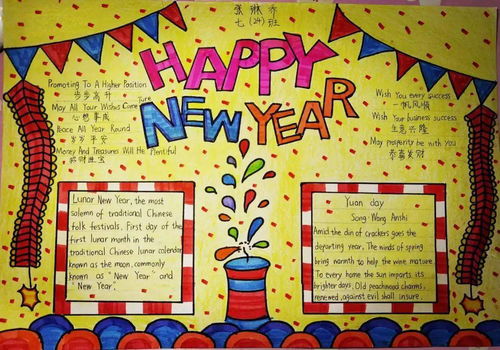 七(24)班
HAPPY
NEW YEAR
Promoting To A Higher Position
步步高升
May All Your Wishes Come Ture
心想事成
Peace All Year Round
岁岁平安
Money And Treasures Will Be Plentiful
招财进宝
Wish You every success
一帆风顺
Wish Your business success
生意兴隆
May prosperity be with You
恭喜发财
Lunar New Year, the most
solemn of traditional Chinese
folk festivals. First day of the
first lunar month in the
traditional Chinese lunar calendar
known as the moon, commonly
known as "New Year" and
"New Year".
Yuan day
Song·Wang Anshi
Amid the din of crackers goes the
departing year. The winds of spring
bring warmth to help the wine mature
To every home the Sun imparts its
brighter days. Old peachwood charms,
renewed, against evil shall insure.